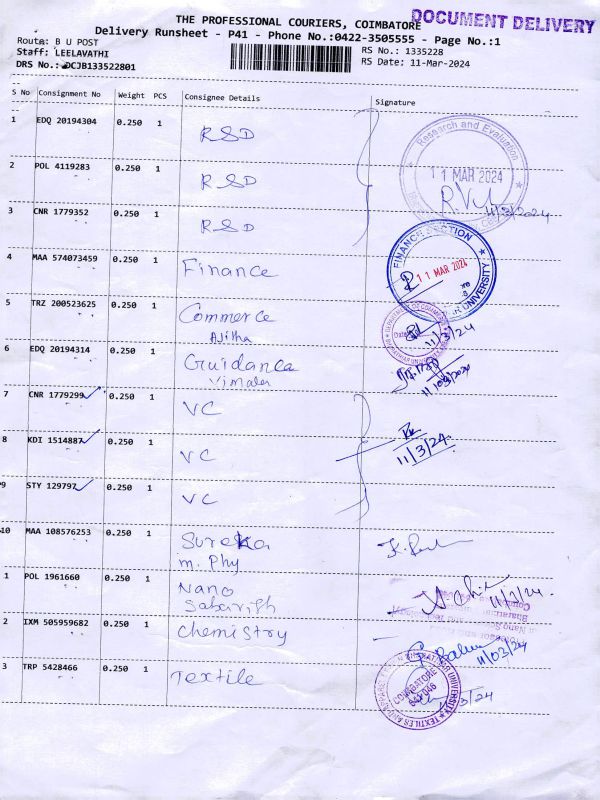 THE PROFESSIONAL COURIERS, COIMBATORE
DOCUMENT DELIVERY
Delivery Runsheet - P41 - Phone No.:0422-3505555 - Page No.:1
Route: B U POST
Staff: LEELAVATHI
DRS No.: DCJB133522801
RS No.: 1335228
RS Date: 11-Mar-2024
S No Consignment No Weight PCS Consignee Details Signature
1 EDQ 20194304 0.250 1 RSD
Research and Evaluation
11 MAR 2024
2 POL 4119283 0.250 1 RSD
11/3/2024
3 CNR 1779352 0.250 1 RSD
4 MAA 574073459 0.250 1 Finance
FINANCE SECTION
11 MAR 2024
UNIVERSITY
5 TRZ 200523625 0.250 1 Commerce
Ajitha
11/3/24
6 EDQ 20194314 0.250 1 Guidance
Vimala
11/03/2024
7 CNR 1779299 0.250 1 VC
8 KDI 1514887 0.250 1 VC
11/3/24.
9 STY 129797 0.250 1 VC
10 MAA 108576253 0.250 1 Sureka
m. Phy
1 POL 1961660 0.250 1 Nano
Sabarish
11/3/24.
2 IXM 505959682 0.250 1 Chemistry
11/03/24
3 TRP 5428466 0.250 1 Textile
COIMBATORE
641 046
11/3/24